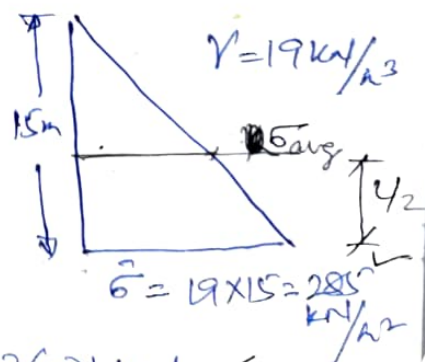 γ=19 kN/m³
15m
σavg
4/2
σ̄ = 19×15 = 285
kN/m²